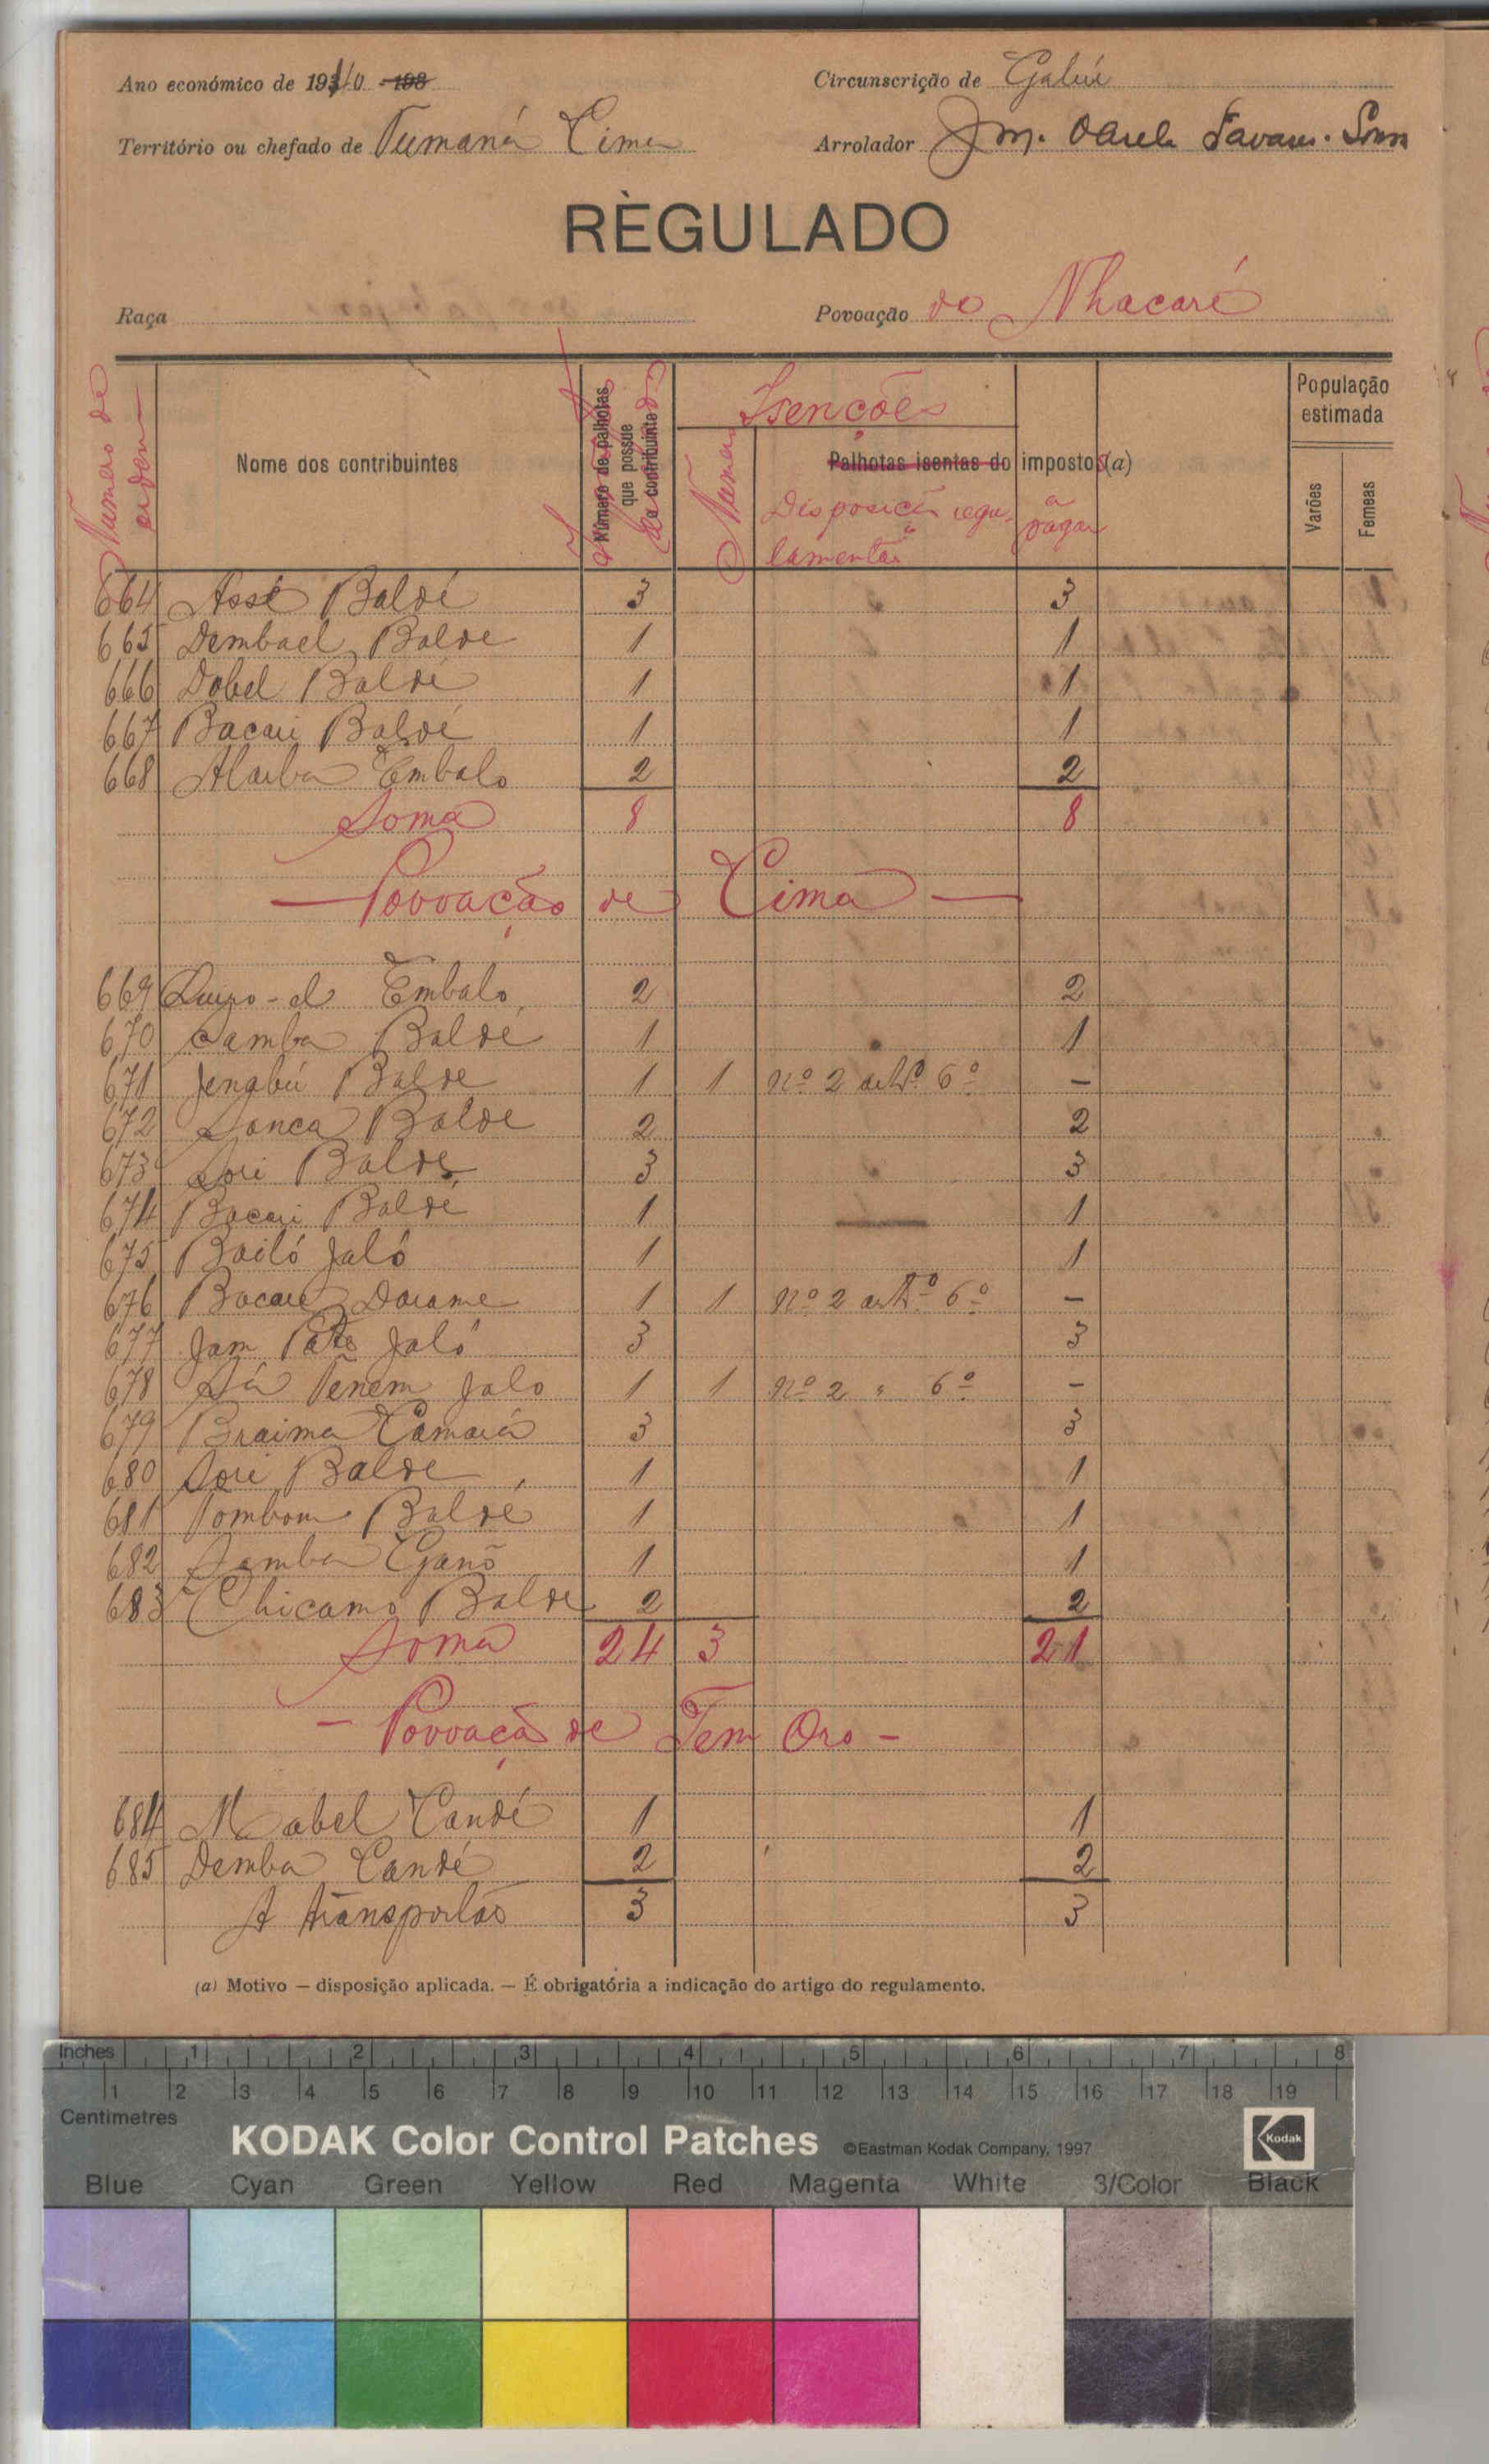 Ano económico de 19 /40 198
Circunscrição de Gabú
Território ou chefado de Tumaná Cima
Arrolador J M.
RÈGULADO
Raça
Povoação do Nhacaré
Numero de ordem
Nome dos contribuintes
Número de palhotas que possue o contribuinte
Isenções
Numero
Palhotas isentas do impostos (a)
Disposição regulamentar
a pagar
População estimada
Varões
Femeas
664 Assé Baldé 3 3
665 Dembael Balde 1 1
666 Dobel Baldé 1 1
667 Bacari Baldé 1 1
668 Embalo 2 2
Soma 8 8
— Povoação de Cima —
669 Embalo 2 2
670 Samba Baldé 1 1
671 Jengbú Balde 1 1 nº 2 artº 6º –
672 Sanca Balde 2 2
673 Sori Baldé 3 3
674 Bacari Baldé 1 1
675 Bailó Jaló 1 1
676 Bacare Darame 1 1 nº 2 artº 6º –
677 Jam Paté Jaló 3 3
678 Sá Tenem Jalo 1 1 nº 2 " 6º –
679 Braima Camará 3 3
680 Sori Balde 1 1
681 Pombom Baldé 1 1
682 Samba Ganõ 1 1
683 Chicamo Balde 2 2
Soma 24 3 21
– Povoação de Tem Oro –
684 Mabel Candé 1 1
685 Demba Candé 2 2
A transportar 3 3
(a) Motivo — disposição aplicada. — É obrigatória a indicação do artigo do regulamento.
Inches 1 2 3 4 5 6 7 8
1 2 3 4 5 6 7 8 9 10 11 12 13 14 15 16 17 18 19
Centimetres
KODAK Color Control Patches ©Eastman Kodak Company, 1997 Kodak
Blue Cyan Green Yellow Red Magenta White 3/Color Black